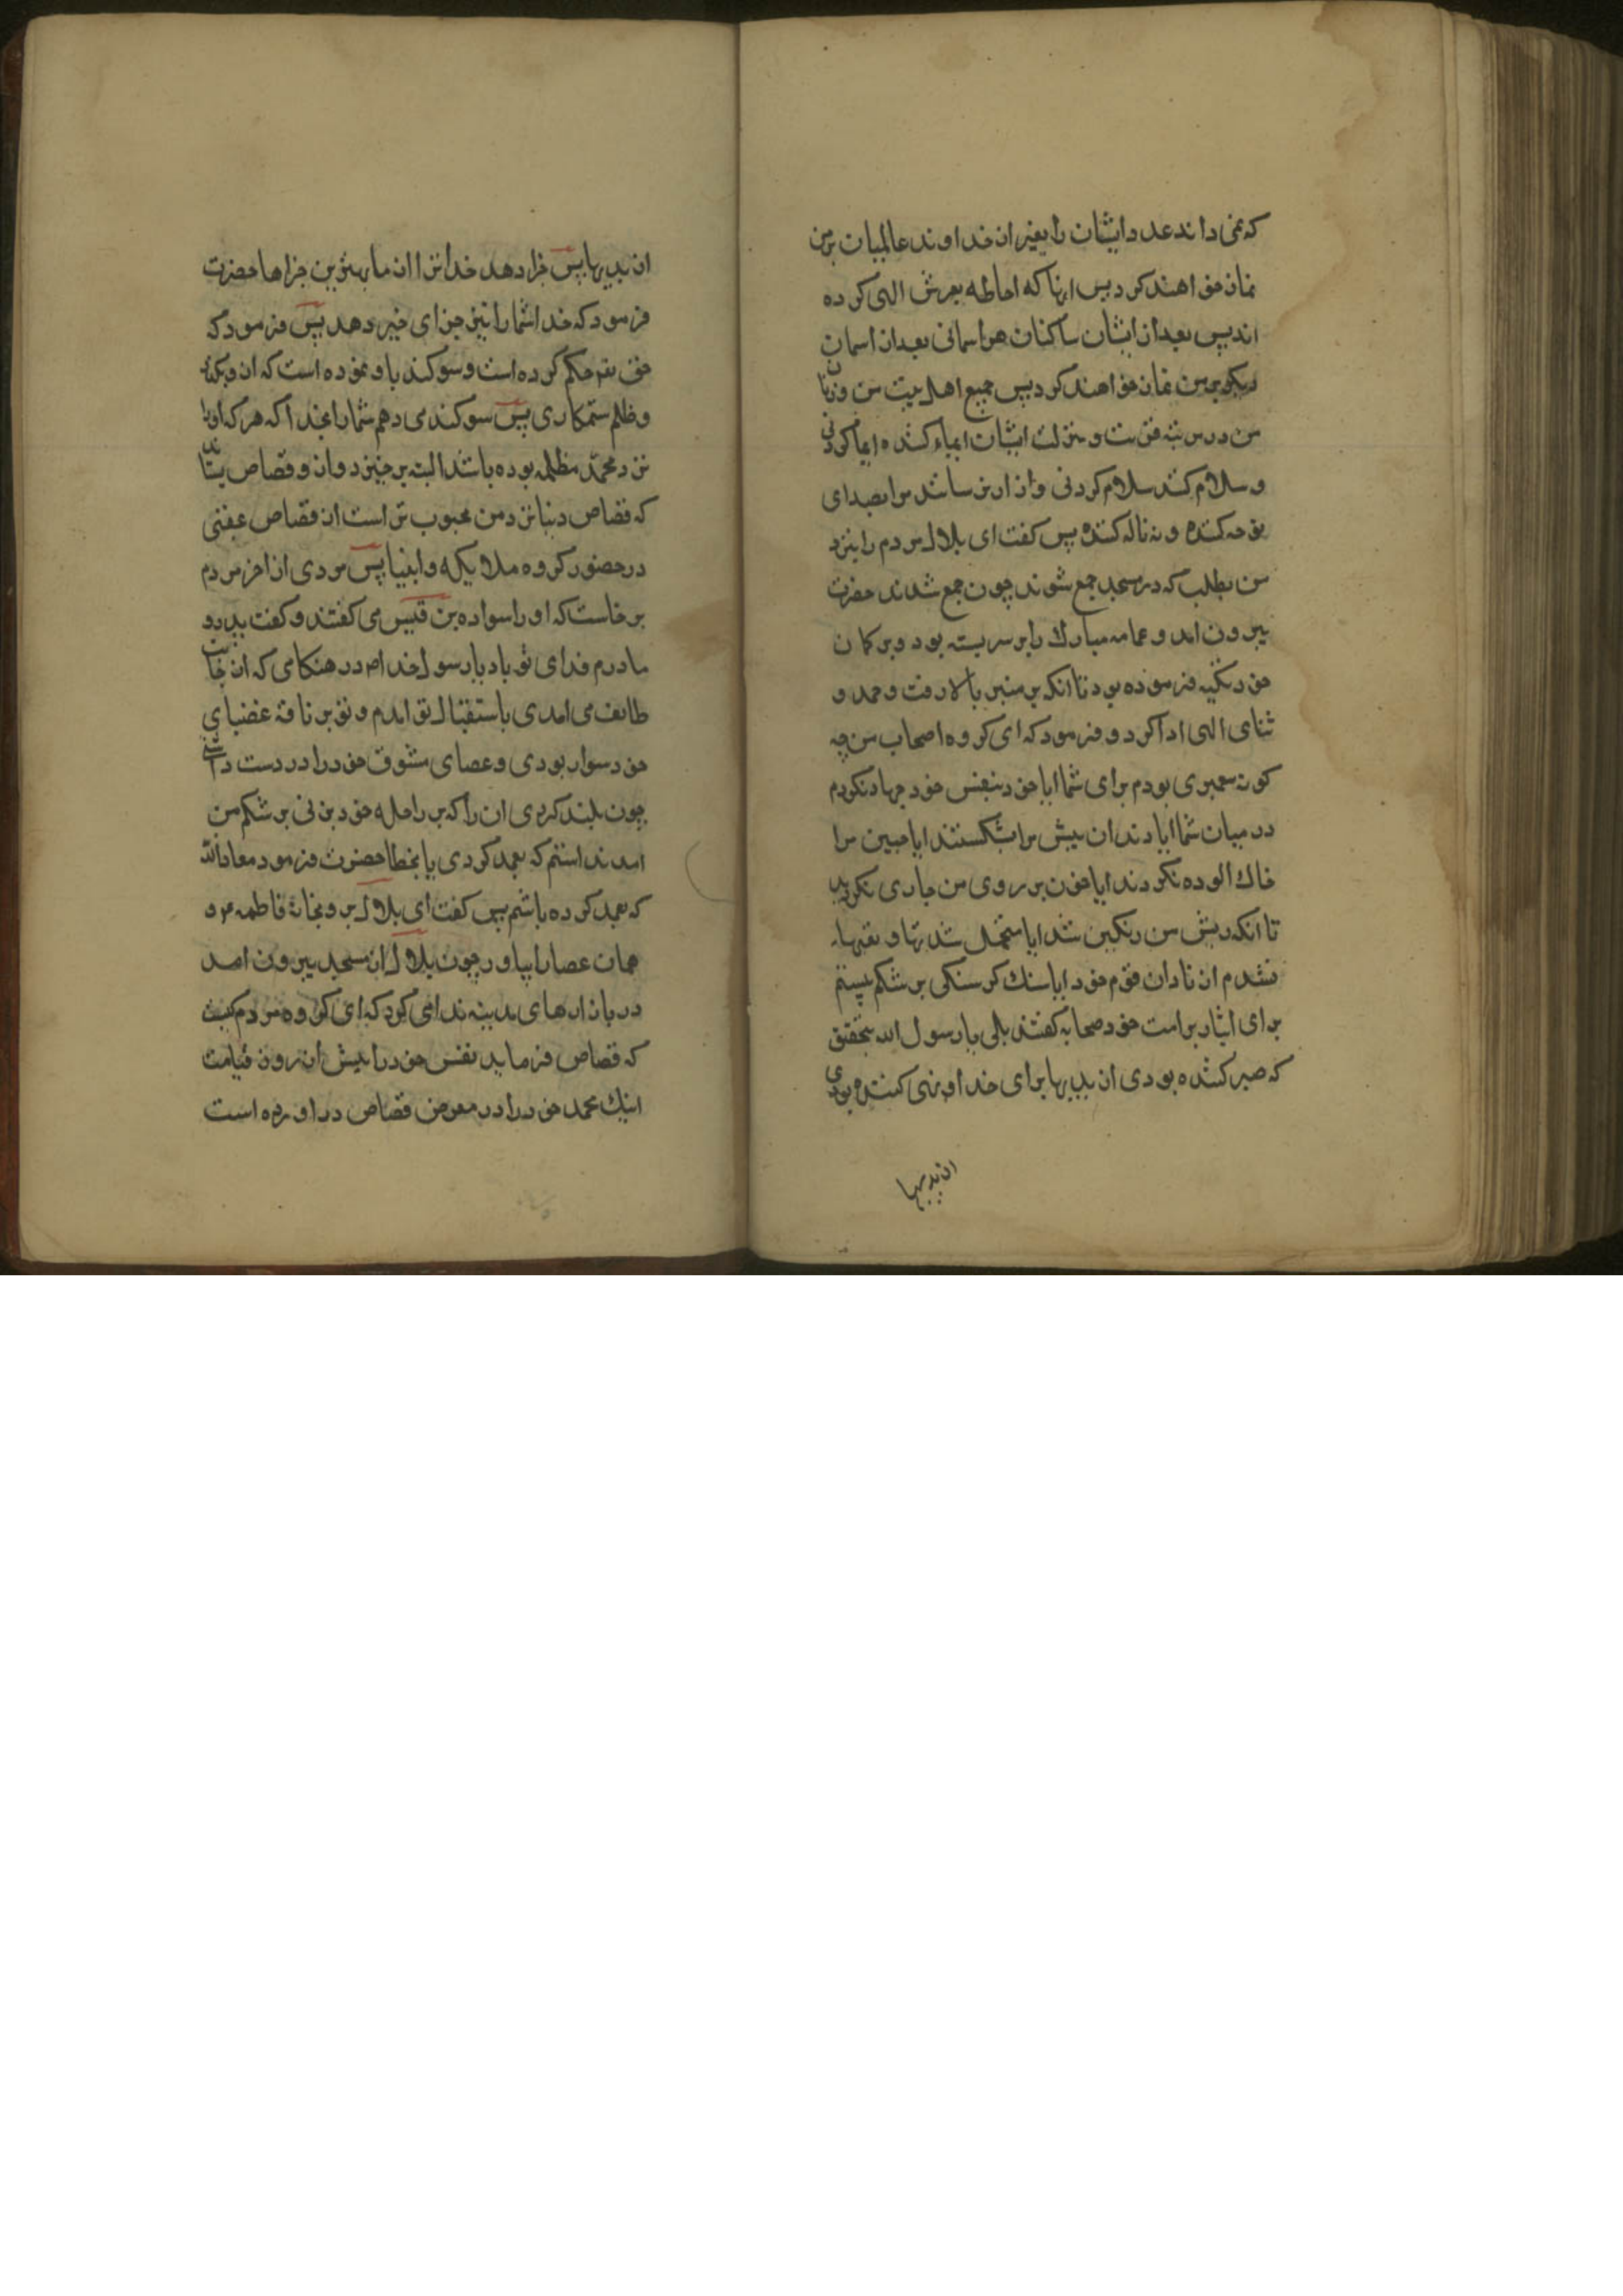 که نمی داند عدد ایشان را بغیر از خداوند عالمیان بر من
نماز خواهند کرد پس انها که احاطه بعرش الهی کرده
اند پس بعد از ایشان ساکنان هر اسمانی بعد از اسمان
دیکر بر من نماز خواهند کرد پس جمیع اهل بیت من و زنان
من در مرتبه قربت و منزلت ایشان ایماء کننده ایما کردنی
و سلام کنند سلام کردنی و ازار نرسانند مرا بصدای
نوحه کننده و نه ناله کننده پس کفت ای بلال مردم را بنزد
من بطلب که در مسجد جمع شوند چون جمع شدند حضرت
بیرون امد و عمامه مبارک را بر سر بسته بود و بر کمان
خود تکیه فرموده بود تا انکه بر منبر بالا رفت و حمد و
ثنای الهی ادا کرد و فرمود که ای کروه اصحاب من چه
کونه پیغمبری بودم برای شما ایا خود بنفس خود جهاد نکردم
در میان شما ایا دندان پیش مرا نشکستند ایا جبین مرا
خاک الوده نکردند ایا خون بر روی من جاری نکردید
تا انکه ریش من رنکین شد ایا متحمل شدتها و تعبها
نشدم از نادان قوم خود ایا سنک کرسنکی بر شکم نبستم
برای ایثار بر امت خود صحابه کفتند بلی یا رسول الله بتحقیق
که صبر کننده بودی از بدیها برای خدا و نهی کننده بودی
از بدیها
از بدیها پس جزا دهد خدا ترا از ما بهترین جزاها حضرت
فرمود که خدا شما را نیز جزای خیر دهد پس فرمود که
حق تعم حکم کرده است و سوکند یاد نموده است که از و نکذرد
و ظلم ستمکاری پس سوکند می دهم شما را بخدا که هر که او را
نزد محمد مظلمه بوده باشد البته بر خیزد و از و قصاص بستاند
که قصاص دنیا نزد من محبوب تر است از قصاص عقبی
در حضور کروه ملایکه و انبیا پس مردی از اخر مردم
بر خاست که او را سواده بن قیس می کفتند و کفت پدر و
مادرم فدای تو باد یا رسول خدا در هنکامی که از جانب
طایف می امدی باستقبال تو امدم و تو بر ناقه غضبای
خود سوار بودی و عصای ممشوق خود را در دست داشتی
چون بلند کردی ان را که بر راحله خود بزنی بر شکم من
امد ندانستم که بعمد کردی یا بخطا حضرت فرمود معاذالله
که بعمد کرده باشم پس کفت ای بلال برو بخانهٔ فاطمه ع و
همان عصا را بیاور چون بلال از مسجد بیرون امد
در بازارهای مدینه ندا می کرد که ای کروه مردم کیست
که قصاص فرماید نفس خود را پیش از روز قیامت
اینک محمد خود را در معرض قصاص در اورده است